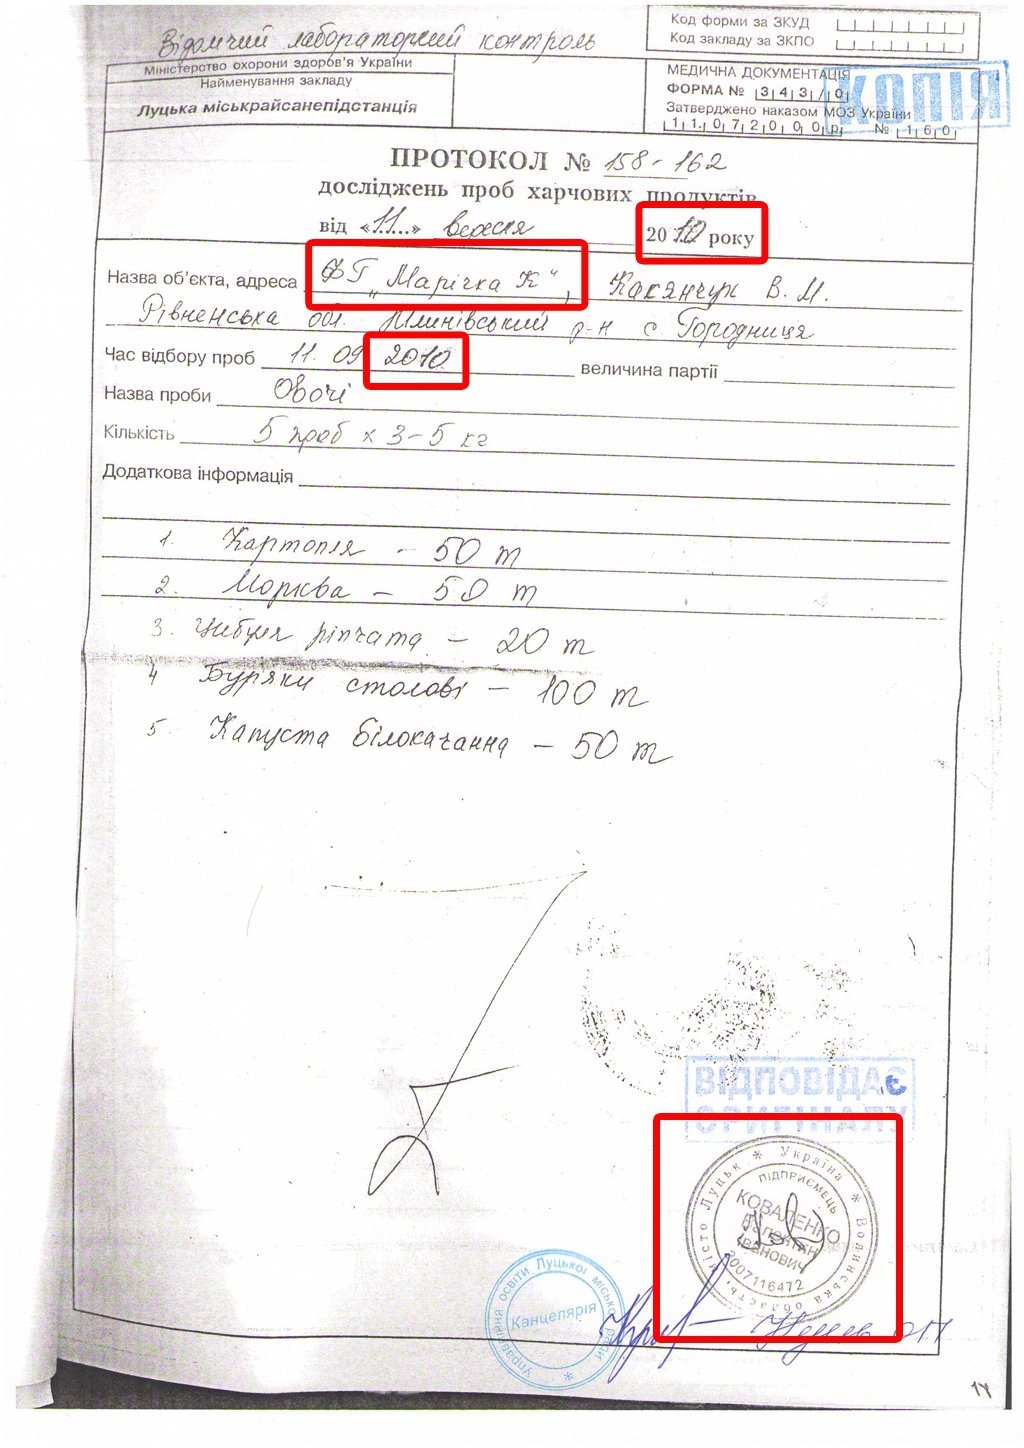 Відомчий лабораторний контроль
Код форми за ЗКУД
Код закладу за ЗКПО
Міністерство охорони здоров'я України
Найменування закладу
Луцька міськрайсанепідстанція
МЕДИЧНА ДОКУМЕНТАЦІЯ
ФОРМА № 343/0
Затверджено наказом МОЗ України
11.072000р № 160
КОПІЯ
ПРОТОКОЛ № 158-162
досліджень проб харчових продуктів
від «11...» вересня 2010 року
Назва об'єкта, адреса ФГ „Марічка К", Какянчук В.М.
Рівненська обл. Млинівський р-н с. Городниця
Час відбору проб 11.09 2010 величина партії
Назва проби Овочі
Кількість 5 проб х 3-5 кг
Додаткова інформація
1. Картопля - 50 т
2. Морква - 50 т
3. Цибуля ріпчата - 20 т
4 Буряки столові - 100 т
5. Капуста білокачанна - 50 т
ВІДПОВІДАЄ
ОРИГІНАЛУ
Україна * Волинська область, місто Луцьк *
ПІДПРИЄМЕЦЬ
КОВАЛЕНКО
ВАЛЕНТИН
ІВАНОВИЧ
2007116472
Управління освіти Луцької міської ради
Канцелярія
14